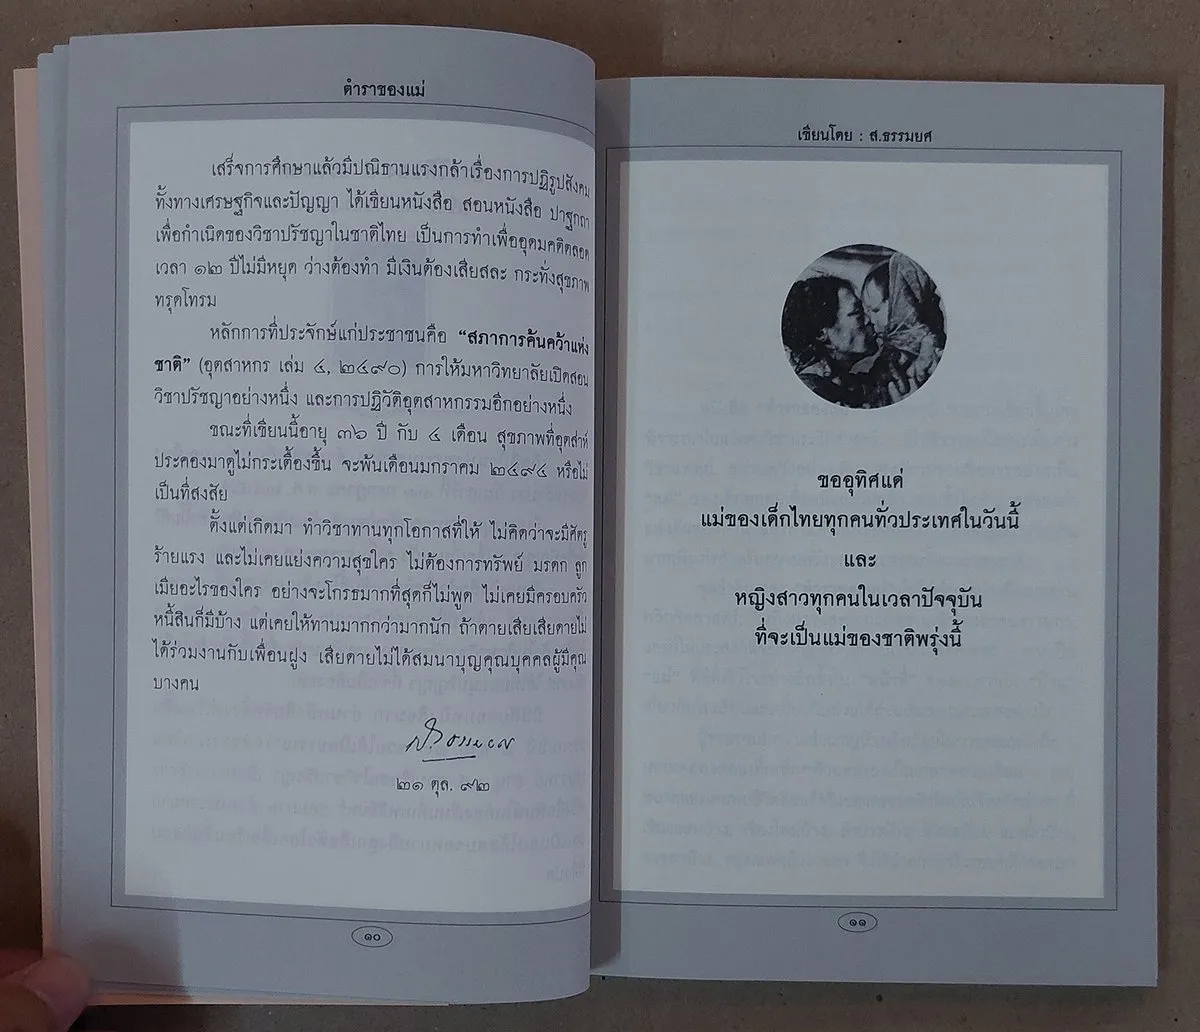 ตำราของแม่
เสร็จการศึกษาแล้วมีปณิธานแรงกล้าเรื่องการปฏิรูปสังคม
ทั้งทางเศรษฐกิจและปัญญา ได้เขียนหนังสือ สอนหนังสือ ปาฐกถา
เพื่อกำเนิดของวิชาปรัชญาในชาติไทย เป็นการทำเพื่ออุดมคติตลอด
เวลา ๑๒ ปีไม่มีหยุด ว่างต้องทำ มีเงินต้องเสียสละ กระทั่งสุขภาพ
ทรุดโทรม
หลักการที่ประจักษ์แก่ประชาชนคือ “สภาการค้นคว้าแห่ง
ชาติ” (อุตสาหกร เล่ม ๔, ๒๔๙๐) การให้มหาวิทยาลัยเปิดสอน
วิชาปรัชญาอย่างหนึ่ง และการปฏิวัติอุตสาหกรรมอีกอย่างหนึ่ง
ขณะที่เขียนนี้อายุ ๓๖ ปี กับ ๔ เดือน สุขภาพที่อุตส่าห์
ประคองมาดูไม่กระเตื้องขึ้น จะพ้นเดือนมกราคม ๒๔๙๔ หรือไม่
เป็นที่สงสัย
ตั้งแต่เกิดมา ทำวิชาทานทุกโอกาสที่ให้ ไม่คิดว่าจะมีศัตรู
ร้ายแรง และไม่เคยแย่งความสุขใคร ไม่ต้องการทรัพย์ มรดก ลูก
เมียอะไรของใคร อย่างจะโกรธมากที่สุดก็ไม่พูด ไม่เคยมีครอบครัว
หนี้สินก็มีบ้าง แต่เคยให้ทานมากกว่ามากนัก ถ้าตายเสียเสียดายไม่
ได้ร่วมงานกับเพื่อนฝูง เสียดายไม่ได้สมนาบุญคุณบุคคลผู้มีคุณ
บางคน
ส.ธรรมยศ
๒๑ ตุล. ๙๒
๑๐
เขียนโดย : ส.ธรรมยศ
ขออุทิศแด่
แม่ของเด็กไทยทุกคนทั่วประเทศในวันนี้
และ
หญิงสาวทุกคนในเวลาปัจจุบัน
ที่จะเป็นแม่ของชาติพรุ่งนี้
๑๑